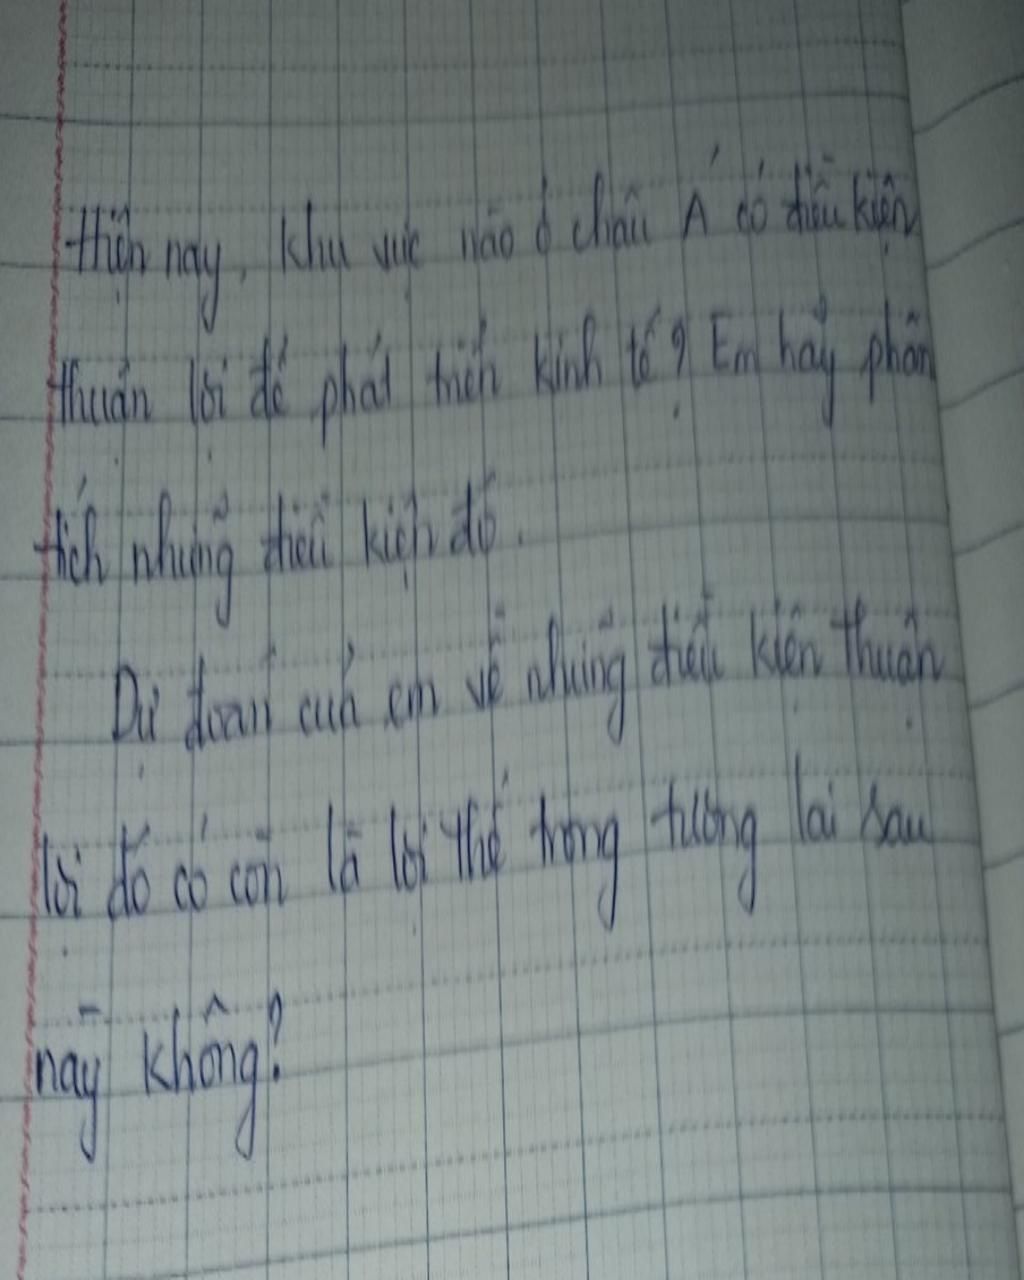 Hiện nay, khu vực nào ở châu Á có điều kiện
thuận lợi để phát triển kinh tế? Em hãy phân
tích những điều kiện đó.
Dự đoán của em về những điều kiện thuận
lợi đó có còn là lợi thế trong tương lai sau
này không?